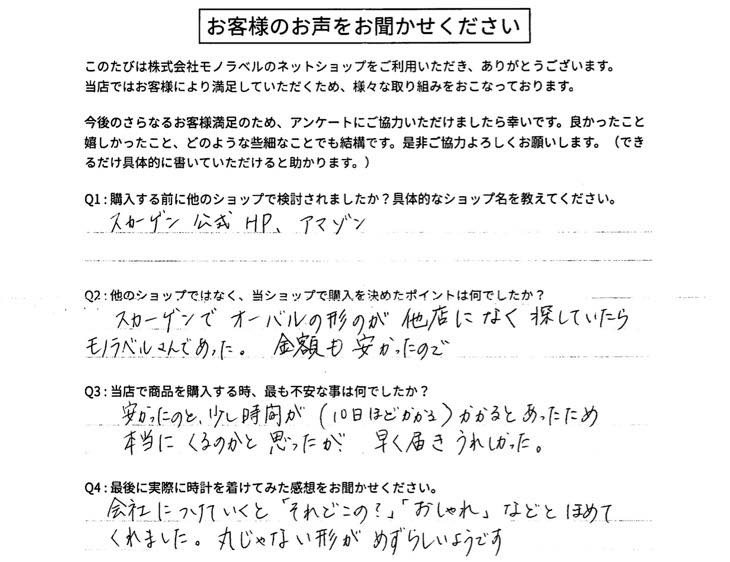 お客様のお声をお聞かせください
このたびは株式会社モノラベルのネットショップをご利用いただき、ありがとうございます。
当店ではお客様により満足していただくため、様々な取り組みをおこなっております。
今後のさらなるお客様満足のため、アンケートにご協力いただけましたら幸いです。良かったこと
嬉しかったこと、どのような些細なことでも結構です。是非ご協力よろしくお願いします。（でき
るだけ具体的に書いていただけると助かります。）
Q1：購入する前に他のショップで検討されましたか？具体的なショップ名を教えてください。
スカーゲン 公式 HP、アマゾン
Q2：他のショップではなく、当ショップで購入を決めたポイントは何でしたか？
スカーゲンで オーバルの形のが 他店に なく 探していたら
モノラベルさんであった。 金額も 安かったので
Q3：当店で商品を購入する時、最も不安な事は何でしたか？
安かったのと、少し時間が（10日ほどかかる）かかるとあったため
本当に くるのかと 思ったが、 早く届き うれしかった。
Q4：最後に実際に時計を着けてみた感想をお聞かせください。
会社に つけていくと「それどこの？」「おしゃれ」などと ほめて
くれました。丸じゃない形が めずらしいようです